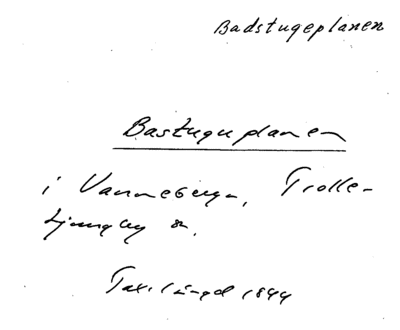 Badstugeplanen
Bastuguplanen
i Vanneberga, Trolle-
Ljungby sn.
Taxl längd 1844